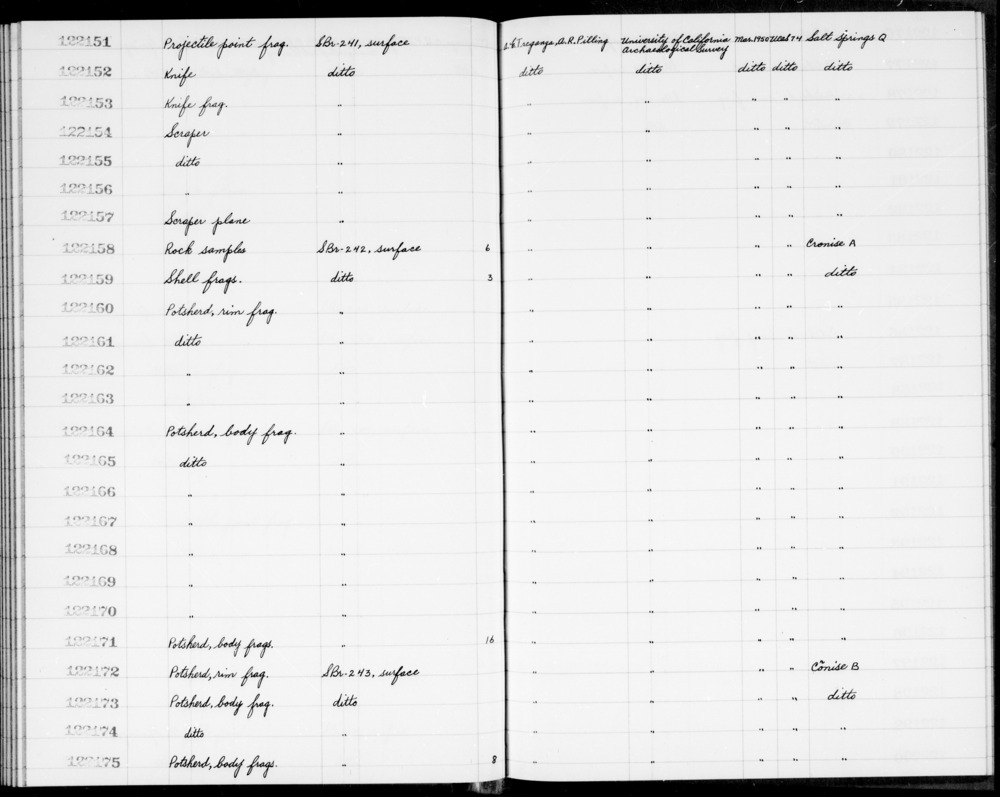 122151 Projectile point frag. SBr-241, surface Treganza, A.R. Pilling University of California Archaeological Survey Mar. 1950 Salt Springs
122152 Knife ditto ditto ditto ditto ditto ditto
122153 Knife frag. " " " " " "
122154 Scraper " " " " " "
122155 ditto " " " " " "
122156 " " " " " " "
122157 Scraper plane " " " " " "
122158 Rock samples SBr-242, surface 6 " " " " Cronise A
122159 Shell frags. ditto 3 " " " " ditto
122160 Potsherd, rim frag. " " " " " "
122161 ditto " " " " " "
122162 " " " " " " "
122163 " " " " " " "
122164 Potsherd, body frag. " " " " " "
122165 ditto " " " " " "
122166 " " " " " " "
122167 " " " " " " "
122168 " " " " " " "
122169 " " " " " " "
122170 " " " " " " "
122171 Potsherd, body frags. " 16 " " " " "
122172 Potsherd, rim frag. SBr-243, surface " " " " Cronise B
122173 Potsherd, body frag. ditto " " " " ditto
122174 ditto " " " " " "
122175 Potsherd, body frags. " 8 " " " " "